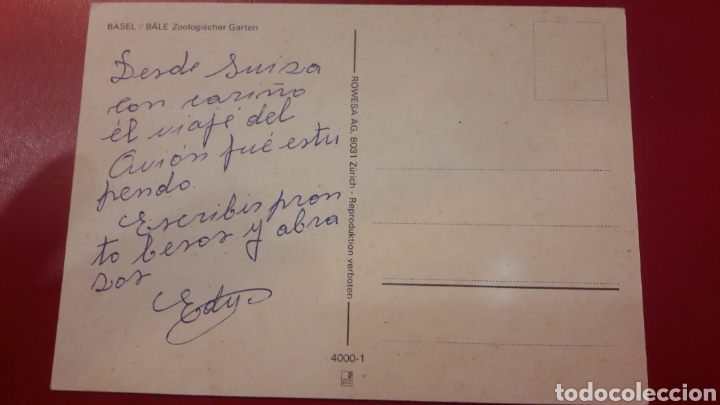 BASEL / BÂLE Zoologischer Garten
Desde Suiza
con cariño
él viaje del
Avión fué estu
pendo.
Escribis pron
to besos y abra
zos
Edy
ROWESA AG, 8031 Zürich - Reproduktion verboten
4000-1
todocoleccion